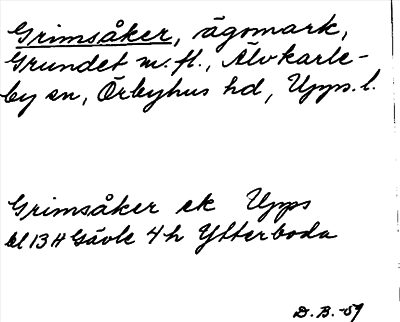 Grimsåker, ägomark,
Grundet m. fl., Älvkarle-
by sn, Örbyhus hd, Upps. l.
Grimsåker ek Upps
bl 13 H Gävle 4 h Ytterboda
D. B. -59